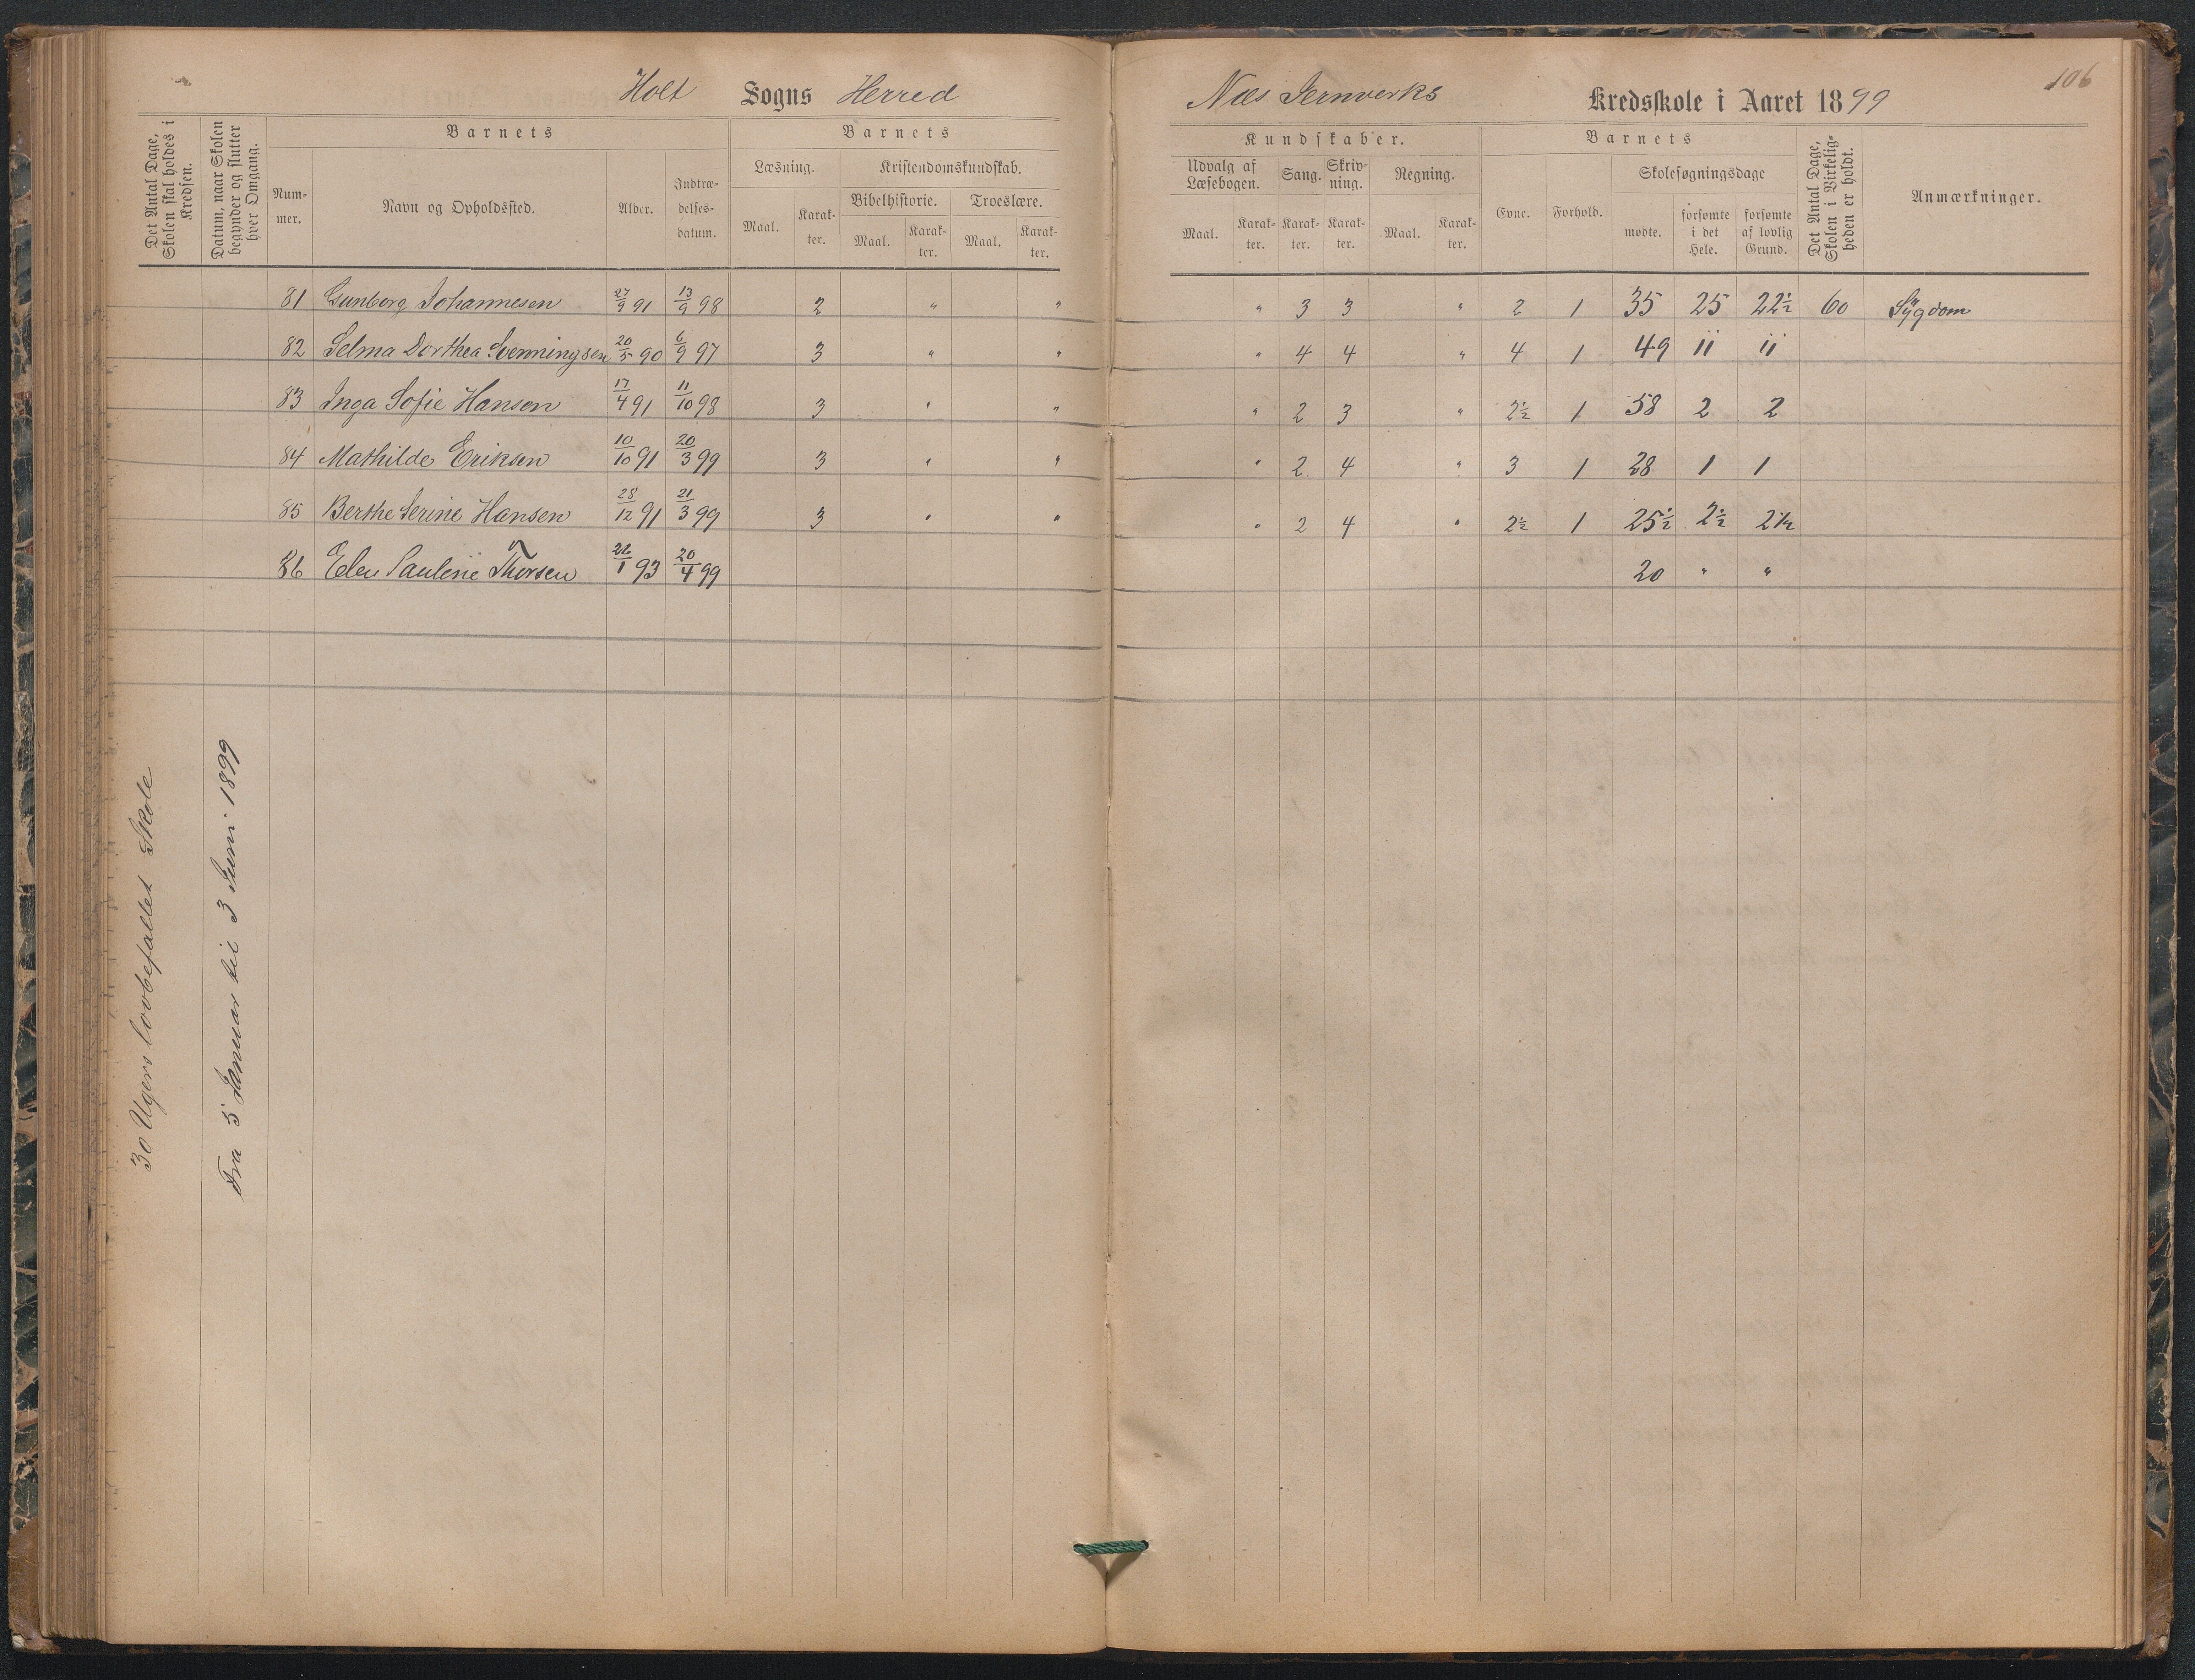 Holt Sogns Herred
Næs Jernverks Kredsskole i Aaret 1899
106
Det Antal Dage, Skolen skal holdes i Kredsen.
Datum, naar Skolen begynder og slutter hver Omgang.
Barnets
Num-
mer.
Navn og Opholdssted.
Alder.
Indtræ-
delses-
datum.
Barnets
Læsning.
Maal.
Karak-
ter.
Kristendomskundskab.
Bibelhistorie.
Maal.
Karak-
ter.
Troeslære.
Maal.
Karak-
ter.
Kundskaber.
Udvalg af
Læsebogen.
Maal.
Karak-
ter.
Sang.
Karak-
ter.
Skriv-
ning.
Karak-
ter.
Regning.
Maal.
Karak-
ter.
Barnets
Evne.
Forhold.
Skolesøgningsdage
mødte.
forsømte
i det
Hele.
forsømte
af lovlig
Grund.
Det Antal Dage, Skolen i Virkelig-
heden er holdt.
Anmærkninger.
81 Gunborg Johannesen 27/9 91 13/9 98 2 " " " 3 3 " 2 1 35 25 22½ 60 Sygdom
82 Selma Dorthea Svenningsen 20/5 90 6/9 97 3 " " " 4 4 " 4 1 49 11 11
83 Inga Sofie Hansen 17/4 91 11/10 98 3 " " " 2 3 " 2½ 1 58 2 2
84 Mathilde Eriksen 10/10 91 20/3 99 3 " " " 2 4 " 3 1 28 1 1
85 Berthe Serine Hansen 28/12 91 21/3 99 3 " " " 2 4 " 2½ 1 25½ 2½ 2½
86 Elen Pauline Thorsen 26/1 93 20/4 99 20 " "
30 Ugers lovbefallet Skole
Fra 5 Januar til 3 Juni 1899